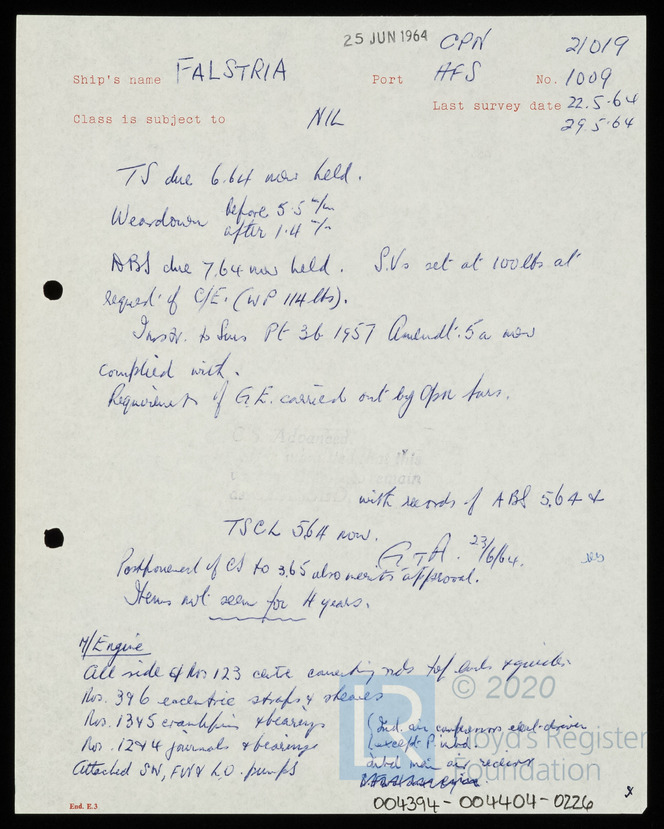 25 JUN 1964 CPN 21019
Ship's name FALSTRIA Port AFS No. 1009
Last survey date 22.5.64
Class is subject to NIL 29.5.64
TS due 6.64 now held.
Weardown before 5.5 m/m
after 1.4 m/m
ABS due 7.64 now held. S.Vs set at 100lbs at
request of C/E. (WP 114lbs).
Instr. to Surs Pt 3b 1957 Amendt. 5a now
complied with.
Requirements of G.E. carried out by Cpn Surs.
C.S. Advanced.
with records of ABS 5,64 &
TSCL 5.64 now.
G.T.A. 23/6/64.
Postponement of CS to 3,65 also merits approval.
Items not seen for 4 years.
M/Engine
All side & Nos 123 centre connecting rods top ends & guides
Nos. 3 & 6 eccentric straps & sheaves
Nos. 1345 crankpins & bearings (Ind. air compressors
Nos. 12&4 journals & bearings (except P. inbd
Attached SW, FW & LO. pumps inbd main air receiver
LR © 2020
Lloyd's Register
Foundation
End. E.3
004394-004404-0226